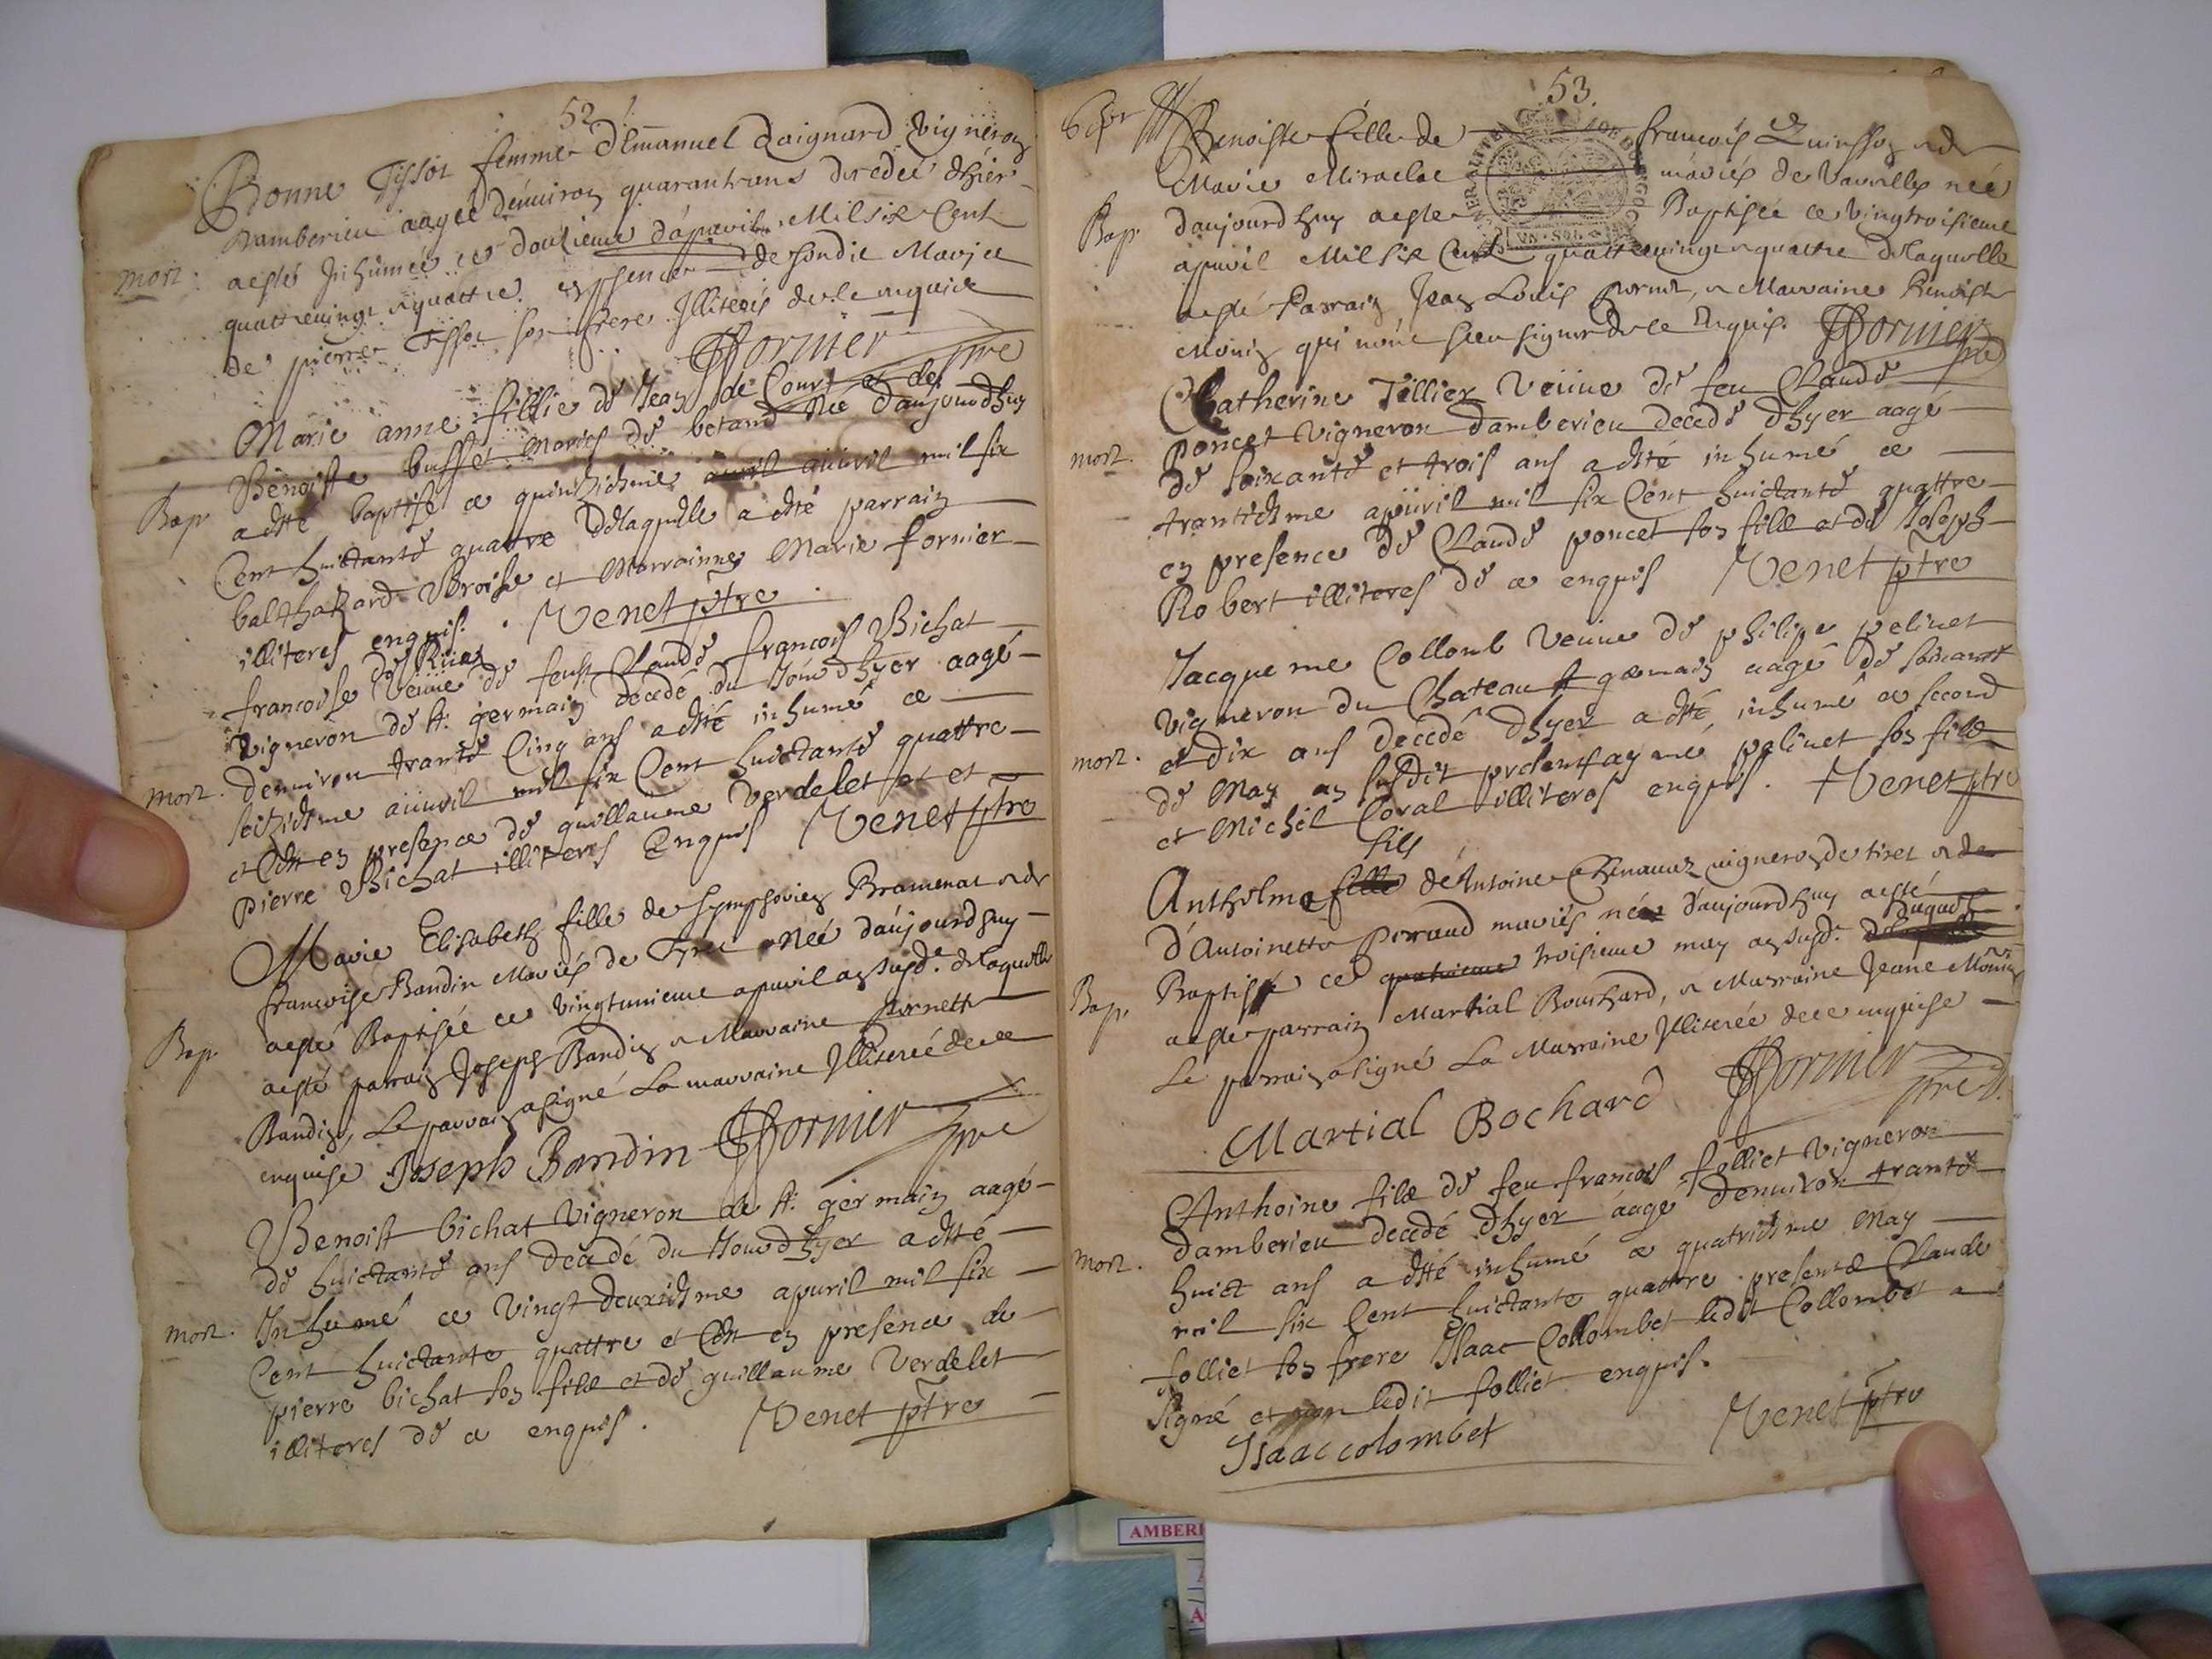 52
Bonne Tissot femme d'Emanuel Daignard vigneron
Damberieu aagée denuiron quarant'ans decedée dhier
mort. aesté Inhumée ce douzieme d'apuril Mil six Cent
quattreuingt & quattre en presence de sondit Mary et
de pierre Tissot son frere Illiterés de ce enquis
Fornier pre
Marie anne fillie de Jean de Court et de
Benoiste buffet mariés de betand Née daujourdhuy
Bap a esté baptisé ce quinziesme auuril mil six
Cent huictante quattre de laquelle a esté parrain
balthazard Broise et Marrainne Marie fornier
illiteres enquis. Venet ptre
francoise de Rües
Veuue de feust Claude francois Bichat
vigneron de st. germain decedé du Jour dhyer aagé
mort. denuiron trante Cinq ans a esté inhumé ce
seiziesme auuril mil six Cent huictante quattre
et Cest en presence de guillaume Verdelet et et
pierre Bichat illiteres Enquis Venet ptre
Marie Elisabeth fille de Symphorien Bramerat & de
francoise Bandin Mariés de Tiret Née daujourdhuy
Bap aesté Baptisée ce vingtunieme apuril an susd. de laquelle
aesté parrain Joseph Bandin & Marraine pernette
Bandin, Le parrain a signé La marraine Illiterée de ce
enquise Joseph Bandin Fornier pre
Benoist bichat vigneron de st. germain aagé
de huictante ans decedé du Jour dhyer a esté
mort. Inhumé ce vingt deuxiesme apuril mil six
Cent huictante quattre et Cest en presence de
pierre bichat son fils et de guillaume Verdelet
illiteres de ce enquis. Venet ptre
53.
Benoiste fille de francois Quinsson & de
Marie Miraclet mariés de Vareilles née
Bap. daujourdhuy aesté Baptisée ce vingtroisieme
apuril Mil six Cent quattreuingt & quattre de laquelle
aesté Parrain Jean Louis pernet, & Marraine Benoiste
Monin qui n'ont sceu signer de ce Enquis. Fornier pre
Catherine Tillier Veuue de feu Claude
poncet vigneron damberieu decedé dhyer aagé
mort. de soixante et trois ans a esté inhumé ce
trantiesme apuril mil six Cent huictante quattre
en presence de Claude poncet son fils et de Joseph
Robert illiteres de ce enquis Venet ptre
Jacqueme Collomb Veuue de philipe pelinet
vigneron du Chateau st germain aagé de soixante
mort. et dix ans decedé dhyer a esté inhumé ce second
de May an susdit present aymé pelinet son fils
et Michel Coral illiteres enquis. Venet ptre
fils
Anthelme fille de Antoine Chenauaz vigneron de tiret & de
d'Antoinette perraud mariés né d'aujourdhuy aesté
Bap. Baptisé ce quatrieme troisieme may an susd. duquel
aesté parrain Martial Bouchard, & Marraine Jeane Monin
Le parrain a signé La Marraine Illiterée de ce enquise
Martial Bochard Fornier pre
Anthoine fils de feu francois folliet vigneron
damberieu decedé dhyer aagé denuiron trante
mort. huict ans a esté inhumé ce quatriesme May
mil six Cent huictante quattre presents Claude
folliet son frere Isaac Collombet ledit Collombet a
signé et non ledit folliet enquis.
Isaac colombet Venet ptre
AMBERI